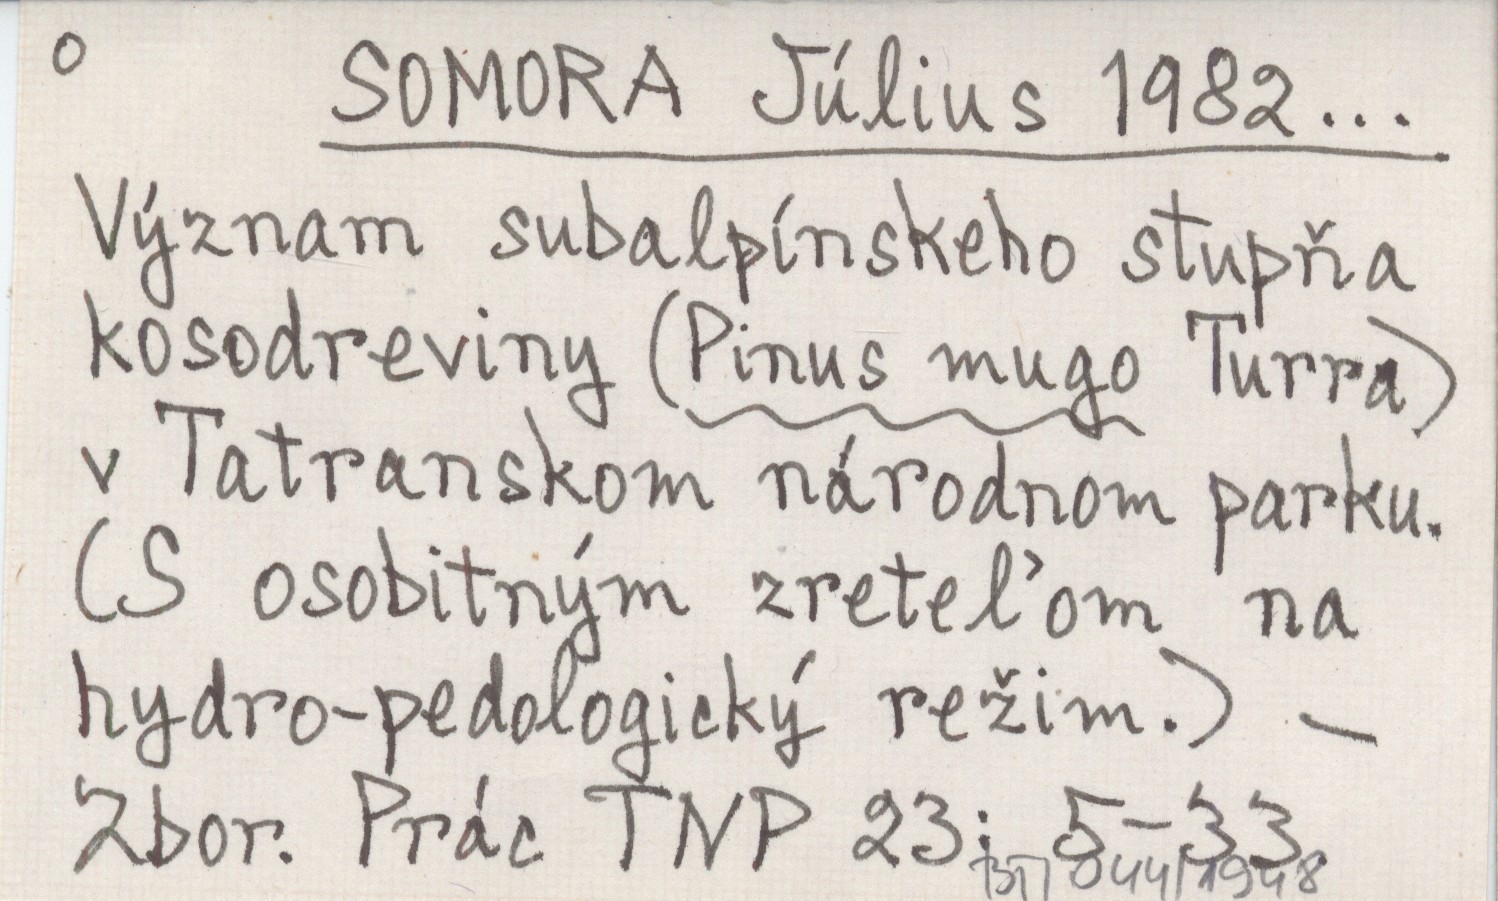 o
SOMORA Július 1982...
Význam subalpínskeho stupňa
kosodreviny (Pinus mugo Turra)
v Tatranskom národnom parku.
(S osobitným zreteľom na
hydro-pedologický režim.) —
Zbor. Prác TNP 23: 5-33
044/1948